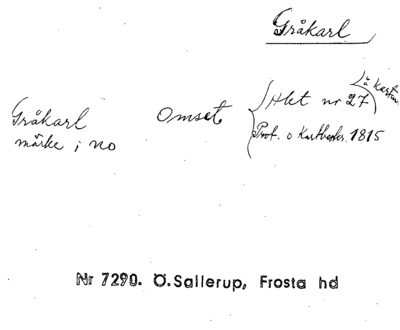 Gråkarl
Gråkarl Omset Akt nr 27 å kartan
märke i no Prot. o Kartbeskr. 1815
Nr 7290. Ö.Sallerup, Frosta hd